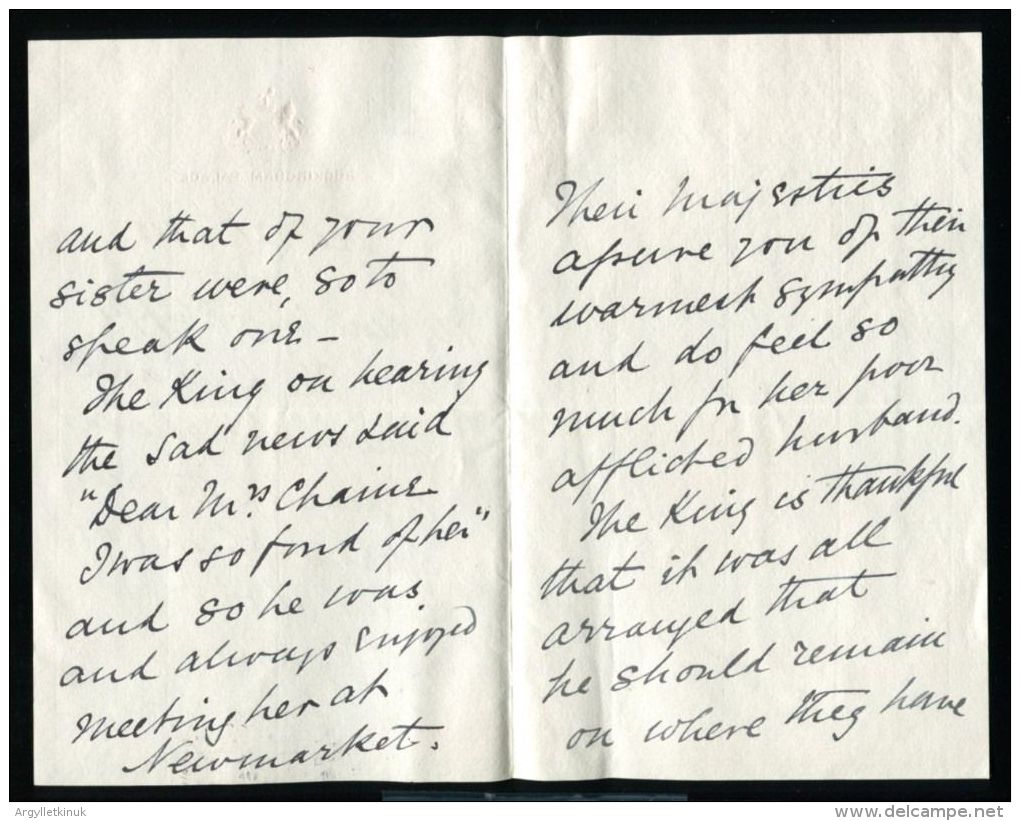 and that of your
sister were, so to
speak one –
The King on hearing
the sad news said
"Dear Mrs. Chaine
I was so fond of her"
and so he was
and always enjoyed
meeting her at
Newmarket.
Their Majesties
assure you of their
warmest sympathy
and do feel so
much for her poor
afflicted husband.
The King is thankful
that it was all
arranged that
he should remain
on where they have
BUCKINGHAM PALACE
Argylletkinuk
www.delcampe.net